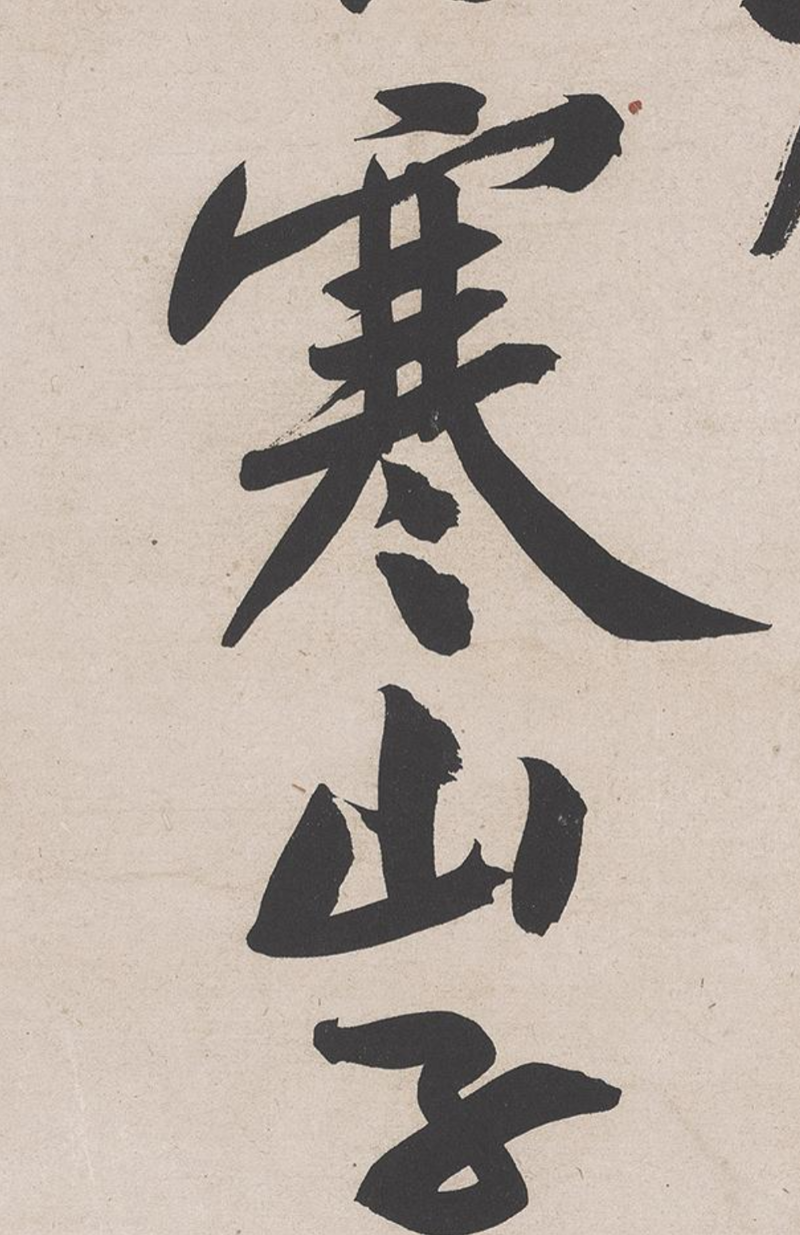 寒山子